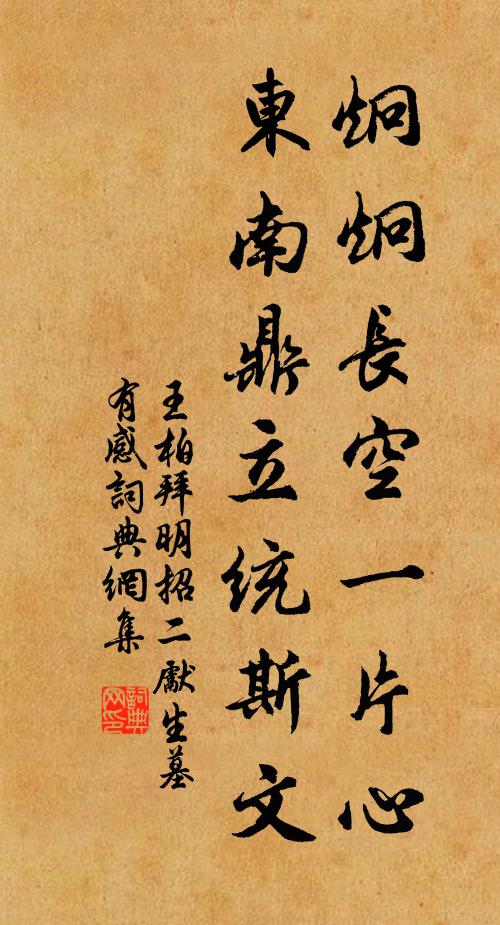 炯炯長空一片心
東南鼎立統斯文
王柏拜明招二獻生墓
有感詞典網集
詞典
网印